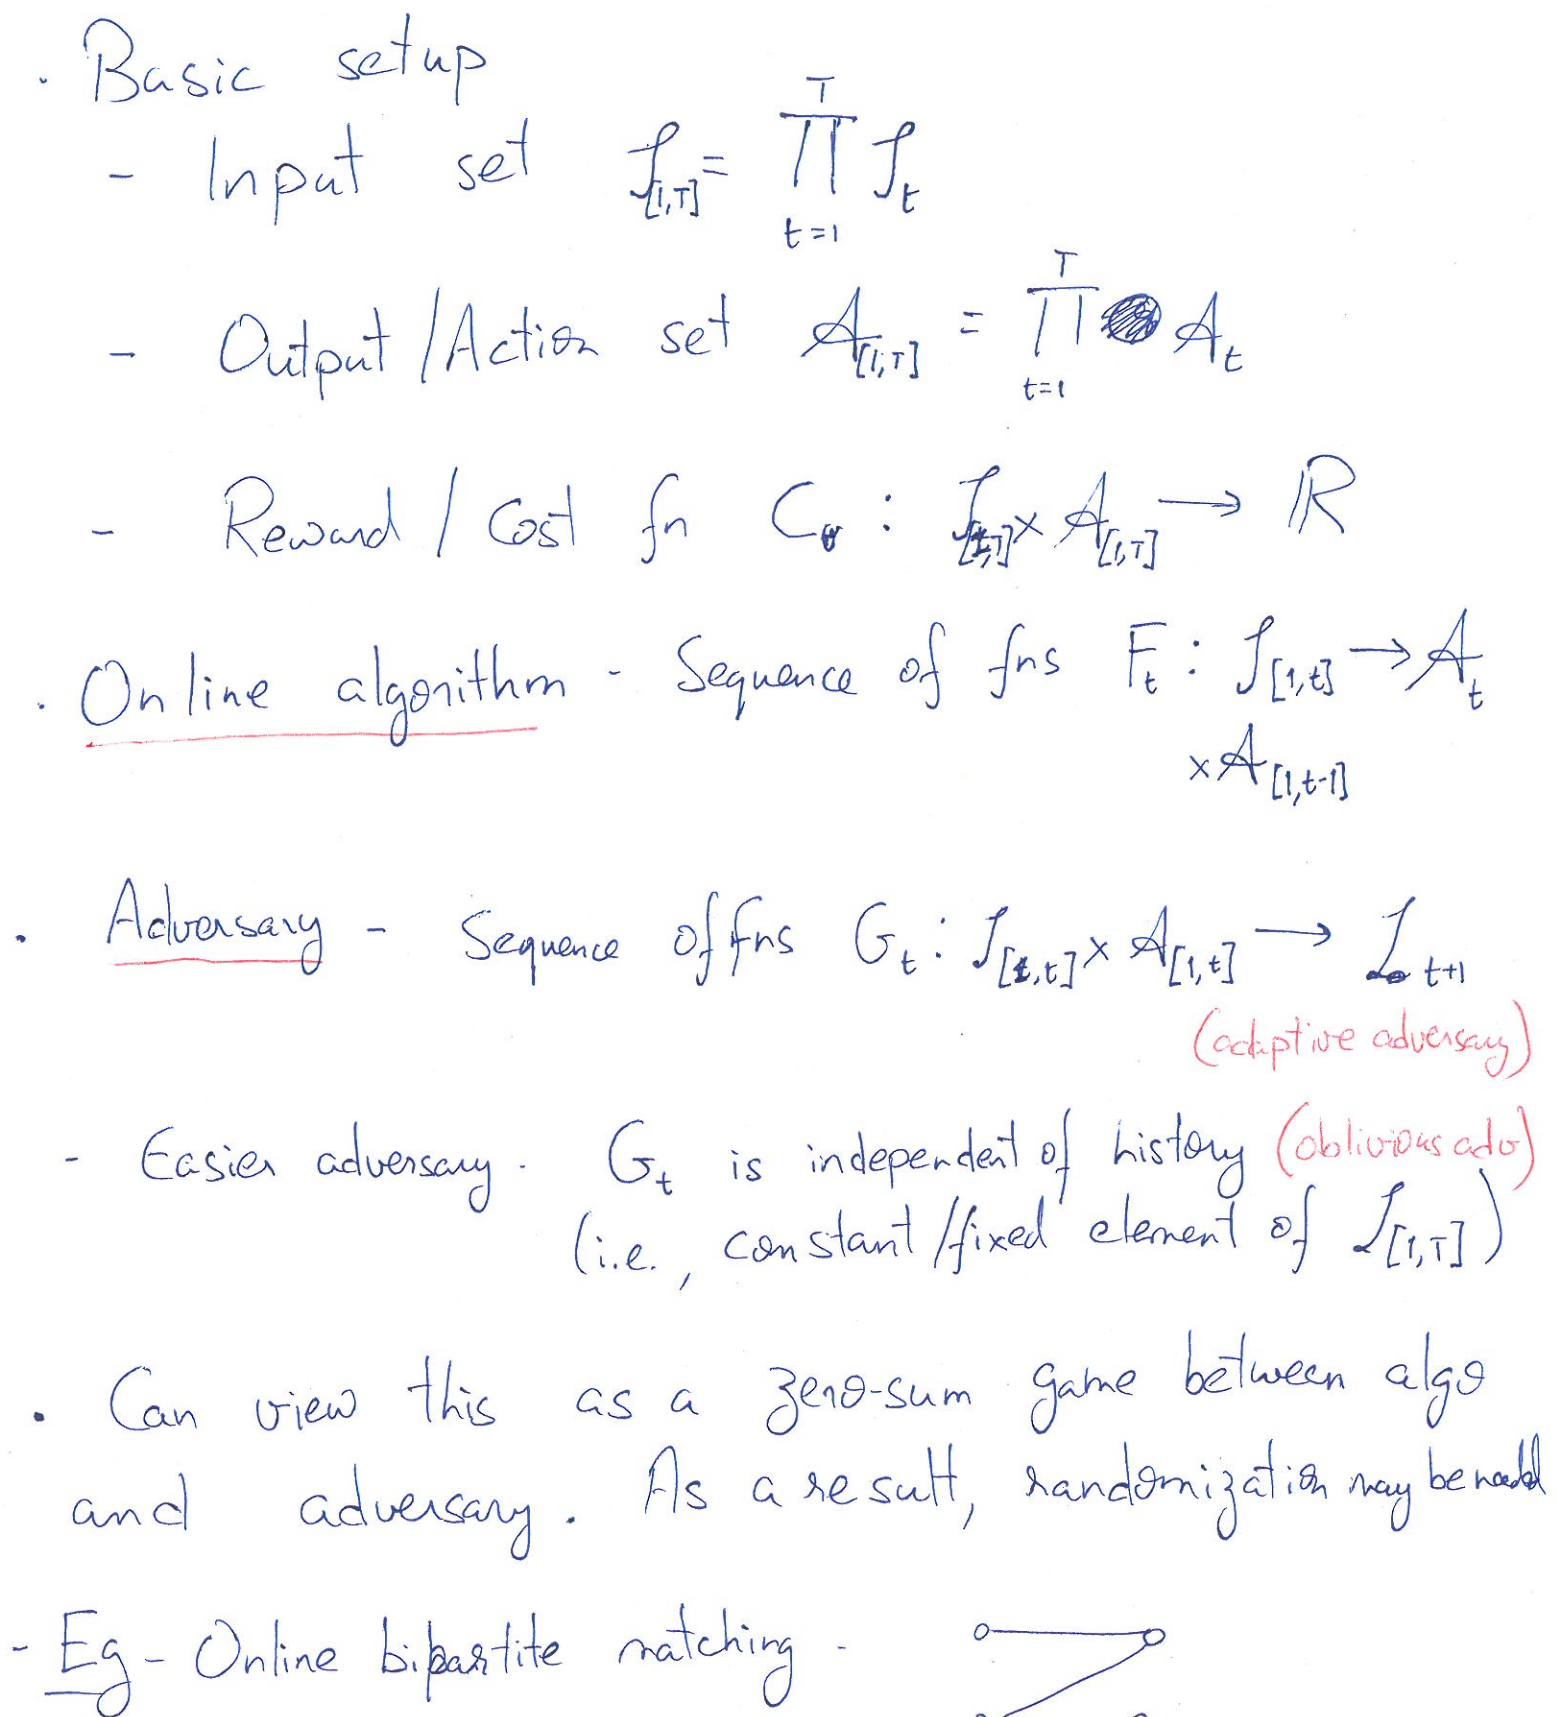 · Basic setup
- Input set 𝓘_[1,T] = ∏_{t=1}^{T} 𝓘_t
- Output/Action set 𝓐_[1,T] = ∏_{t=1}^{T} 𝓐_t
- Reward / Cost fn C : 𝓘_[1,T] × 𝓐_[1,T] → ℝ
· Online algorithm - Sequence of fns F_t : 𝓘_[1,t] → 𝓐_t
× 𝓐_[1,t-1]
· Adversary - Sequence of fns G_t : 𝓘_[1,t] × 𝓐_[1,t] → 𝓘_t+1
(adaptive adversary)
- Easier adversary - G_t is independent of history (oblivious adv)
(i.e., constant/fixed element of 𝓘_[1,T])
· Can view this as a zero-sum game between algo
and adversary. As a result, randomization may be needed
- Eg - Online bipartite matching -